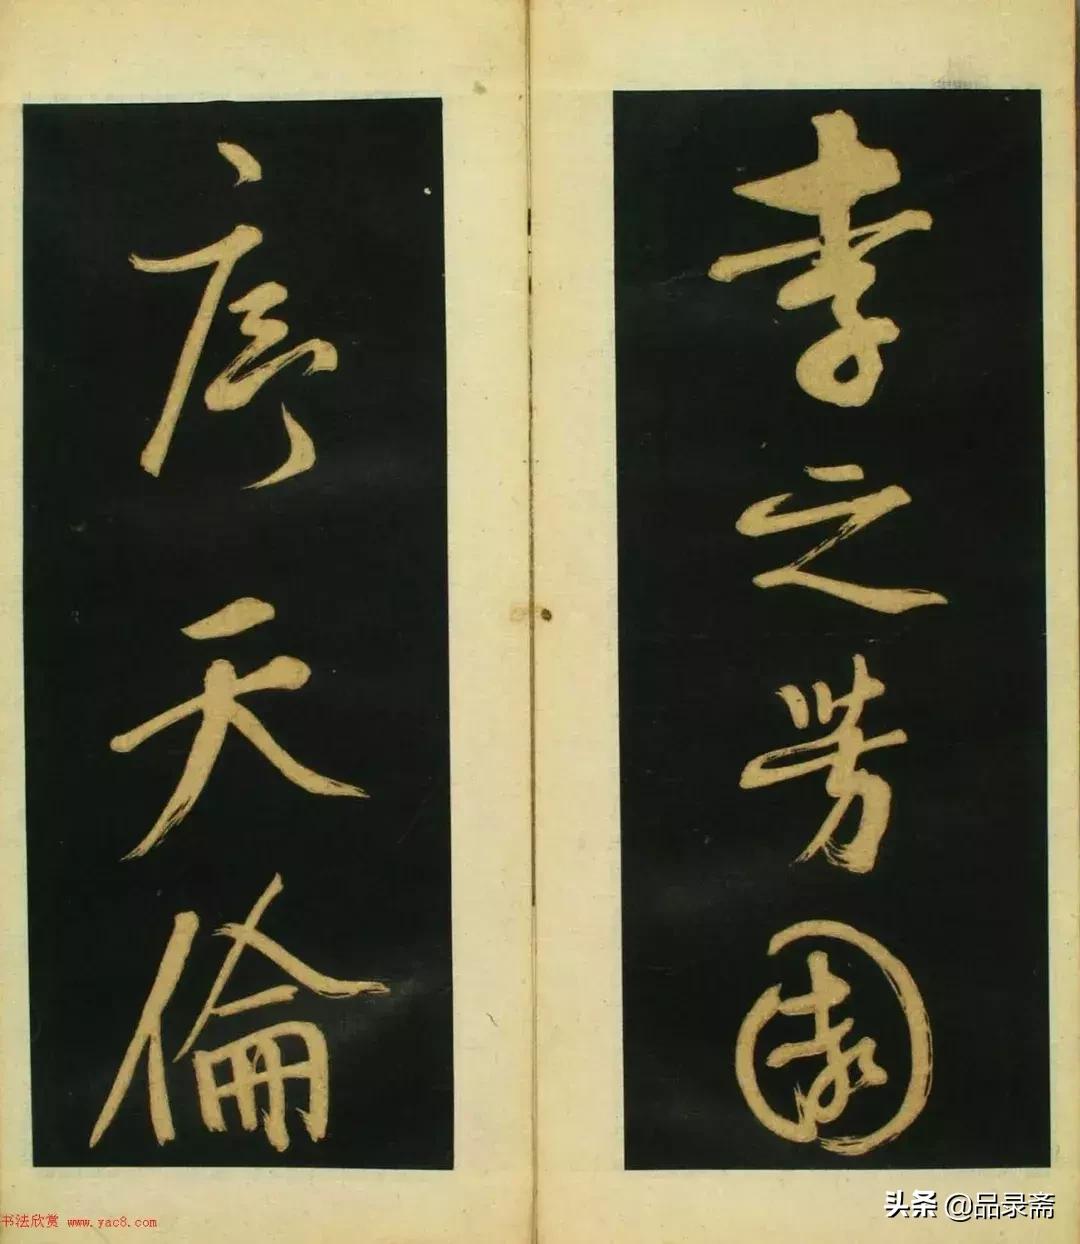 李之芳園
序天倫
书法欣赏 www.yac8.com
头条 @品录斋